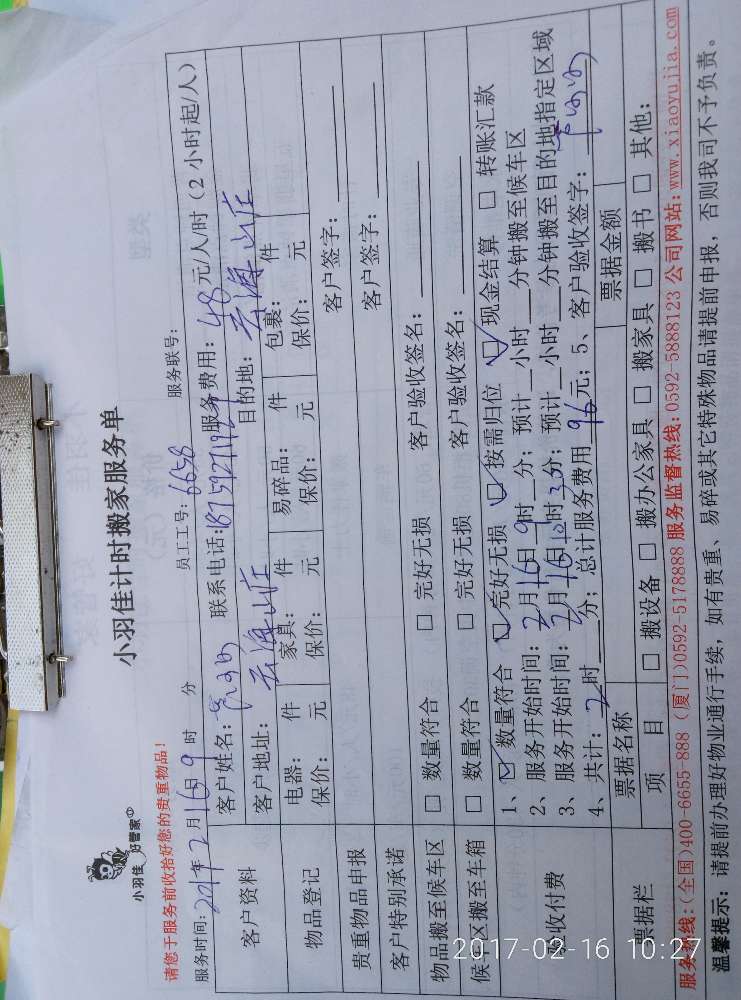 小羽佳 好管家
小羽佳计时搬家服务单
请您于服务前收拾好您的贵重物品!
服务时间:2017年2月16日9时 分 员工工号:6658 服务联号:
客户资料 客户姓名: 联系电话: 服务费用:48元/人/时(2小时起/人)
客户地址:云海山庄 目的地:云海山庄
物品登记 电器: 件 家具: 件 易碎品: 件 包裹: 件
保价: 元 保价: 元 保价: 元 保价: 元
贵重物品申报 客户签字:
客户特别承诺 客户签字:
物品搬至候车区 □ 数量符合 □ 完好无损 客户验收签名:
候车区搬至车箱 □ 数量符合 □ 完好无损 客户验收签名:
验收付费 1、☑ 数量符合 ☑ 完好无损 ☑ 按需归位 ☑ 现金结算 □ 转账汇款
2、服务开始时间:2月16日9时__分;预计__小时__分钟搬至候车区
3、服务开始时间:2月16日10时30分;预计__小时__分钟搬至目的地指定区域
4、共计:2时__分;总计服务费用96元;5、客户验收签字:
票据栏 票据名称 票据金额
项 目 □ 搬设备 □ 搬办公家具 □ 搬家具 □ 搬书 □ 其他:
服务热线:(全国)400-6655-888 (厦门)0592-5178888 服务监督热线:0592-5888123 公司网站:www.xiaoyujia.com
温馨提示:请提前办理好物业通行手续,如有贵重、易碎或其它特殊物品请提前申报,否则我司不予负责。
2017-02-16 10:27